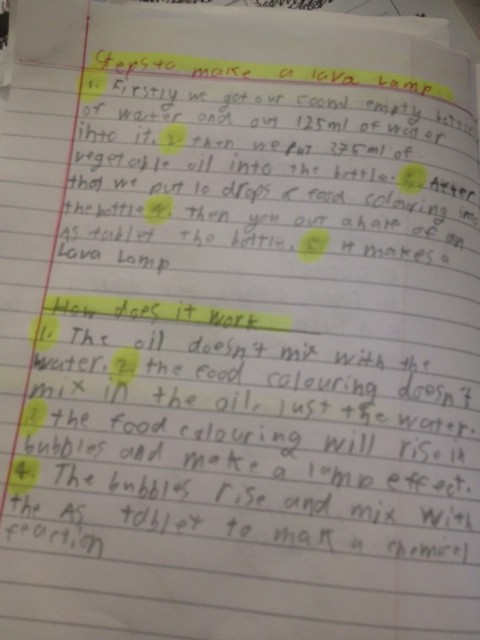 Steps to make a lava lamp
1. Firstly we got our 600ml empty bottle
of water and put 125ml of water
into it. 2. then we put 275ml of
vegetable oil into the bottle. 3. After
that we put 10 drops of food colouring into
the bottle 4. then you put a half of an
As tablet the bottle. 5. it makes a
Lava Lamp
How does it work
1. The oil doesn't mix with the
water. 2. the food colouring doesn't
mix in the oil, just the water.
3. the food colouring will rise in
bubbles and make a lamp effect.
4. The bubbles rise and mix with
the As tablet to mak a chemical
reaction